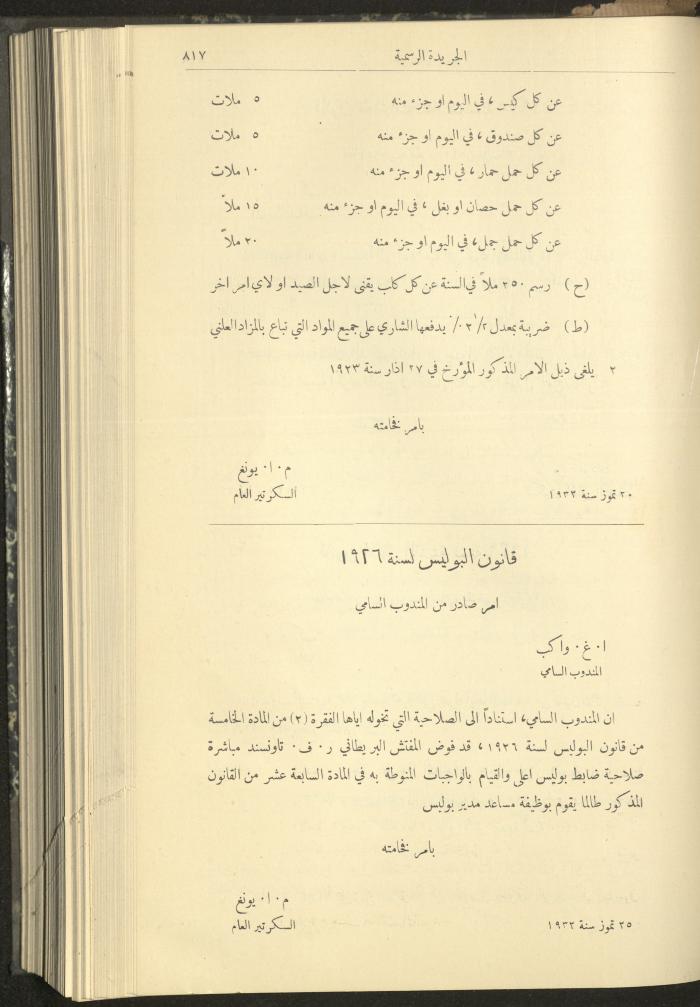 الجريدة الرسمية ٨١٧
عن كل كيس ، في اليوم او جزء منه ٥ ملات
عن كل صندوق ، في اليوم او جزء منه ٥ ملات
عن كل حمل حمار ، في اليوم او جزء منه ١٠ ملات
عن كل حمل حصان او بغل ، في اليوم او جزء منه ١٥ ملاً
عن كل حمل جمل ، في اليوم او جزء منه ٢٠ ملاً
(ح) رسم ٢٥٠ ملاً في السنة عن كل كلب يقنى لاجل الصيد او لاي امر اخر
(ط) ضريبة بمعدل ٢١/٢ ٠/٠ يدفعها الشاري على جميع المواد التي تباع بالمزاد العلني
٢ يلغى ذيل الامر المذكور المؤرخ في ٢٧ اذار سنة ١٩٢٣
بامر فخامته
م٠ ا٠ يونغ
٢٠ تموز سنة ١٩٣٢ السكرتير العام
قانون البوليس لسنة ١٩٢٦
امر صادر من المندوب السامي
ا٠ غ٠ واكب
المندوب السامي
ان المندوب السامي، استناداً الى الصلاحية التي تخوله اياها الفقرة (٢) من المادة الخامسة
من قانون البوليس لسنة ١٩٢٦ ، قد فوض المفتش البريطاني ر٠ ف٠ تاونسند مباشرة
صلاحية ضابط بوليس اعلى والقيام بالواجبات المنوطة به في المادة السابعة عشر من القانون
المذكور طالما يقوم بوظيفة مساعد مدير بوليس
بامر فخامته
م٠ ا٠ يونغ
٢٥ تموز سنة ١٩٣٢ السكرتير العام